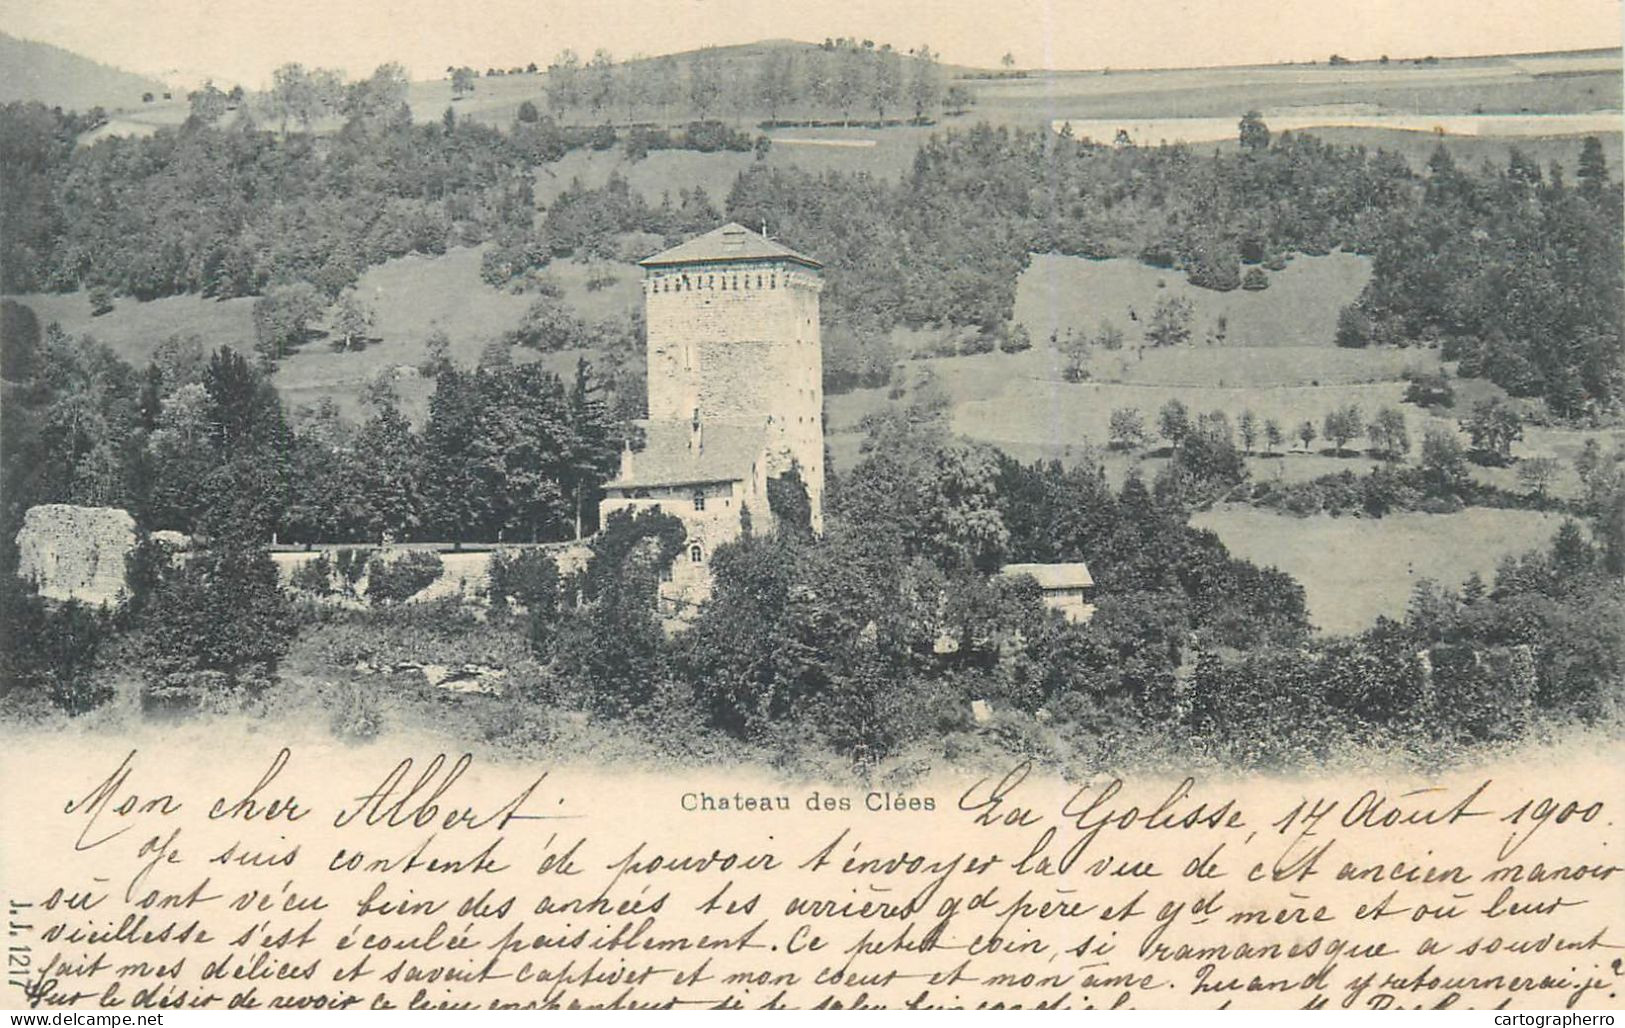 Chateau des Clées
Mon cher Albert. La Golisse, 17 Août 1900.
Je suis contente de pouvoir t'envoyer la vue de cet ancien manoir
où ont vécu bien des années tes arrières gd père et gd mère et où leur
vieillesse s'est écoulée paisiblement. Ce petit coin, si ramanesque a souvent
fait mes délices et savait captiver et mon coeur et mon âme. Quand y retournerai-je?
Sur le désir de revoir ce lieu enchanteur je te salue bien
J.J. 1217
cartographerro